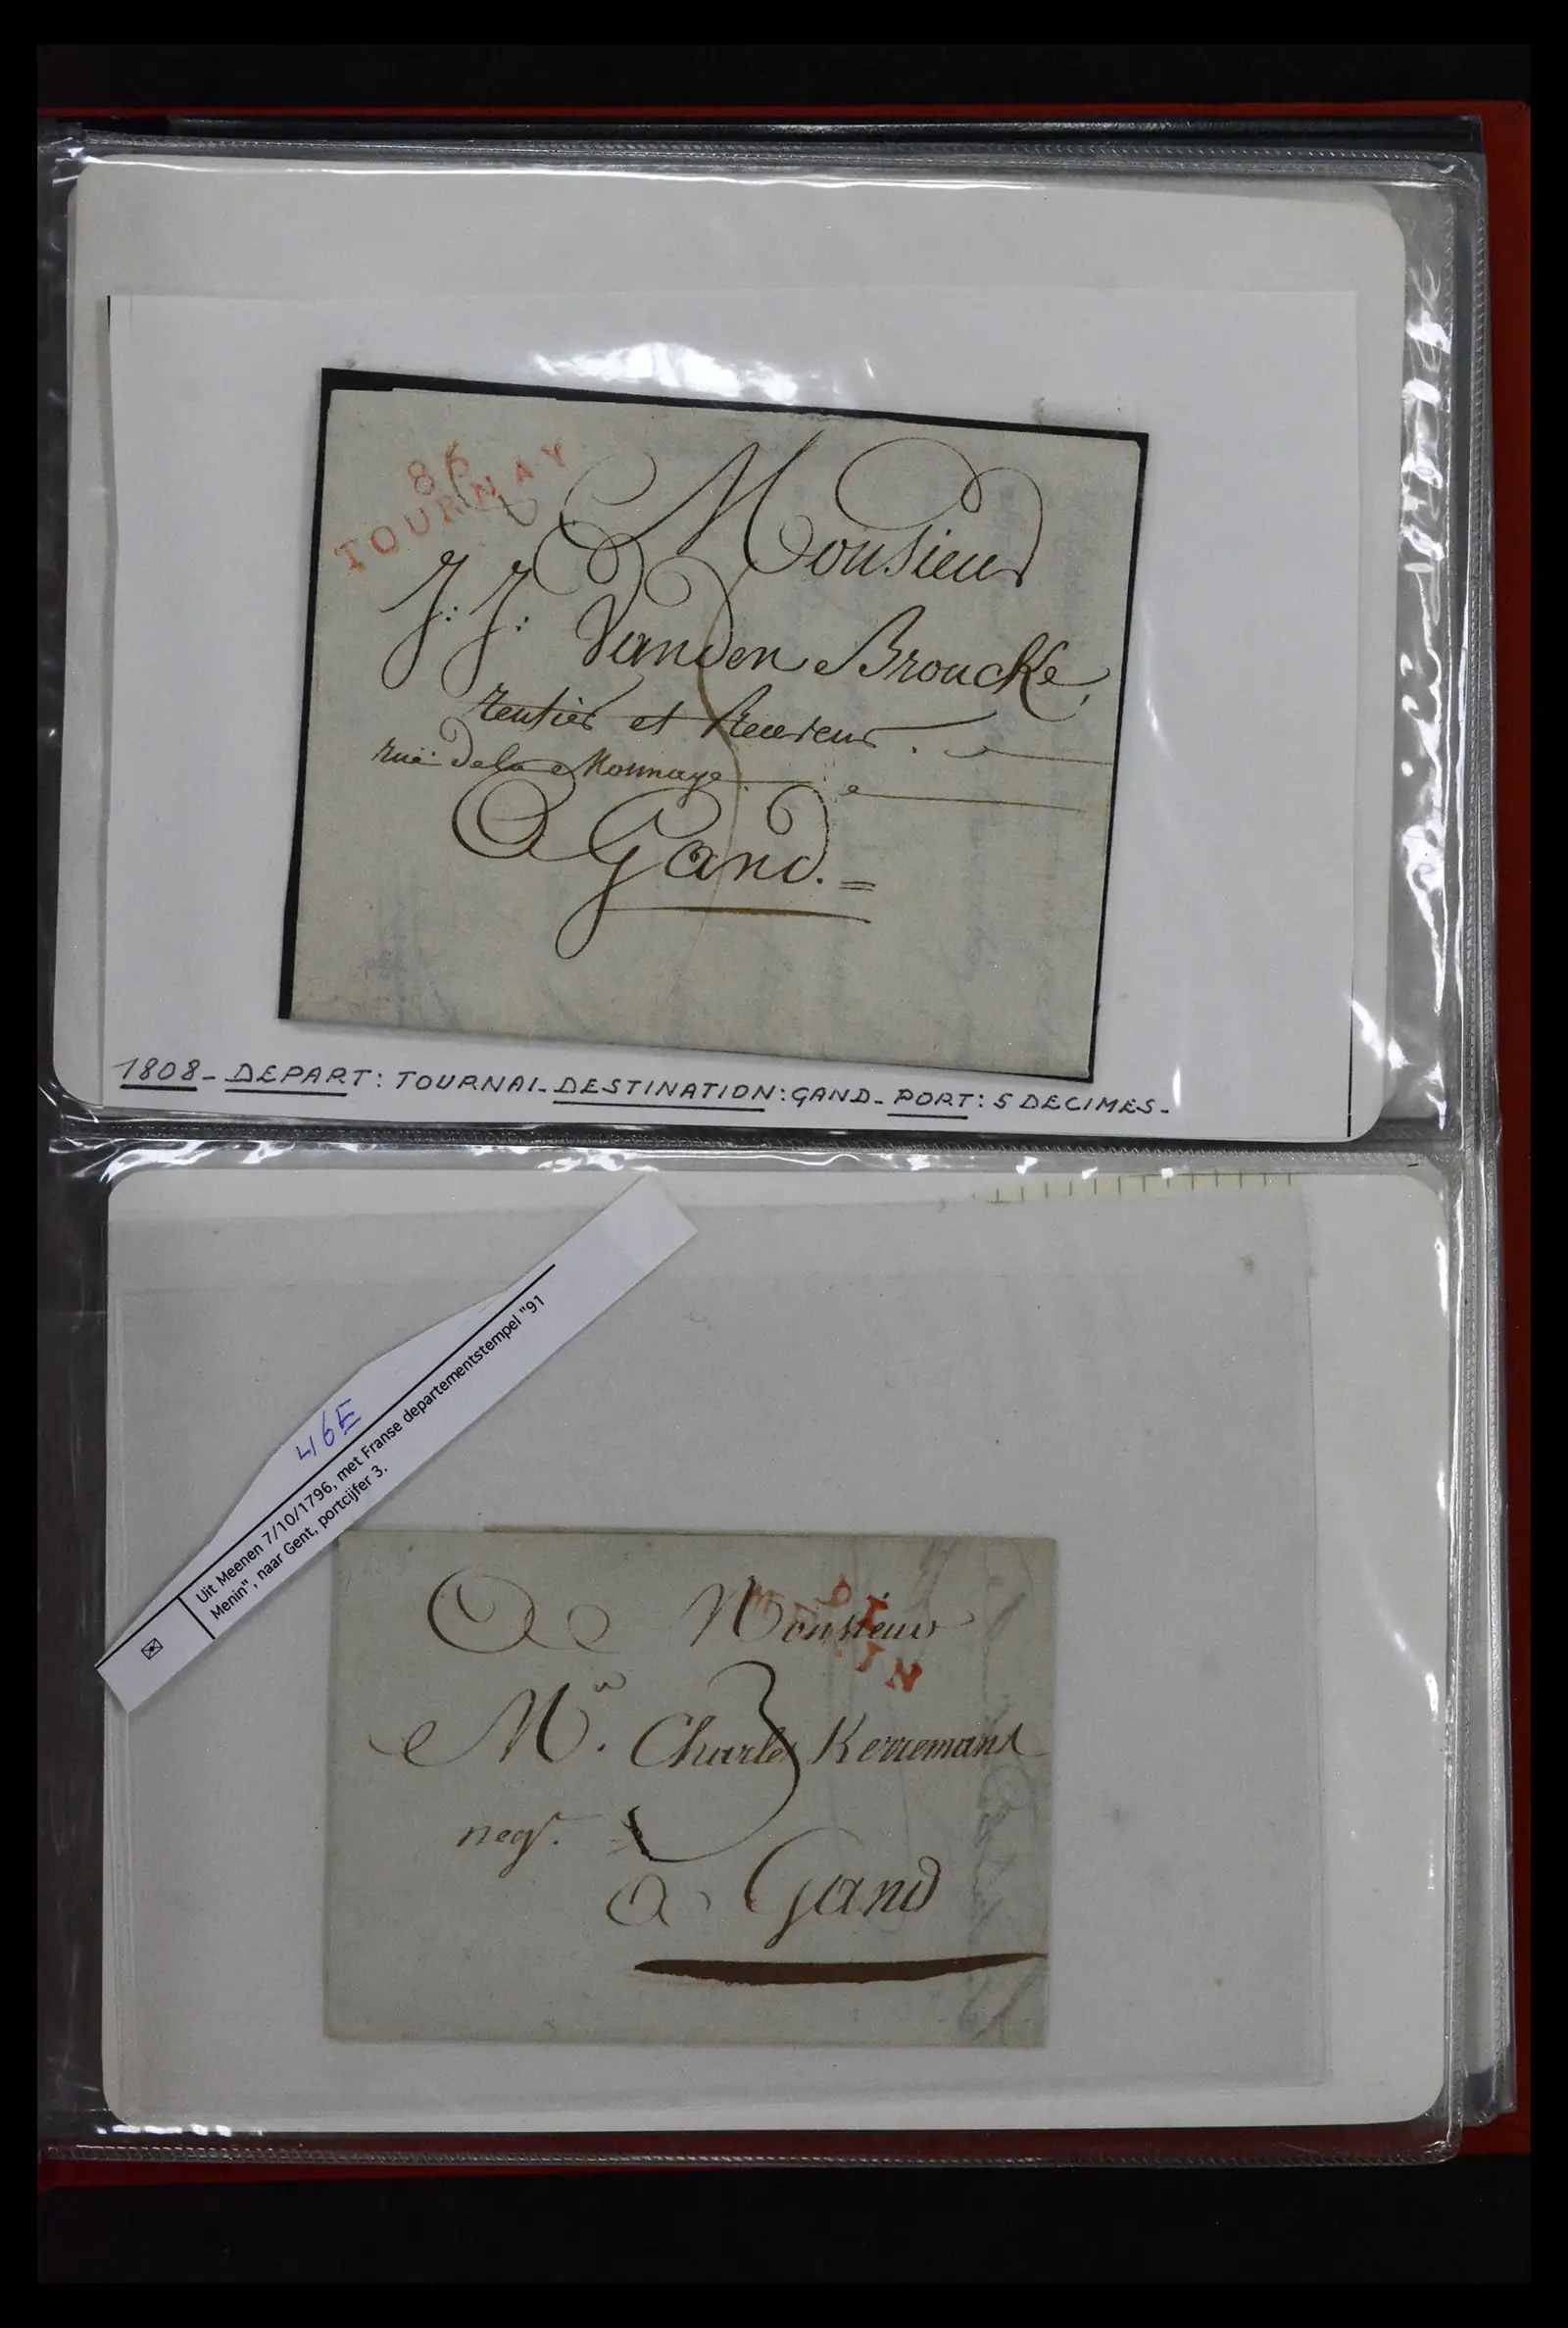 86
TOURNAY
Monsieur
J: J: Vanden Broucke,
rentier et Receveur.
rue de la Monnaye
A Gand.
1808- DEPART: TOURNAI- DESTINATION: GAND- PORT: 5 DECIMES-
46E
Uit Meenen 7/10/1796, met Franse departementstempel "91
Menin", naar Gent, portcijfer 3.
91
MENIN
A Monsieur
Mr. Charles Kerremans
negt.
3
a Gand